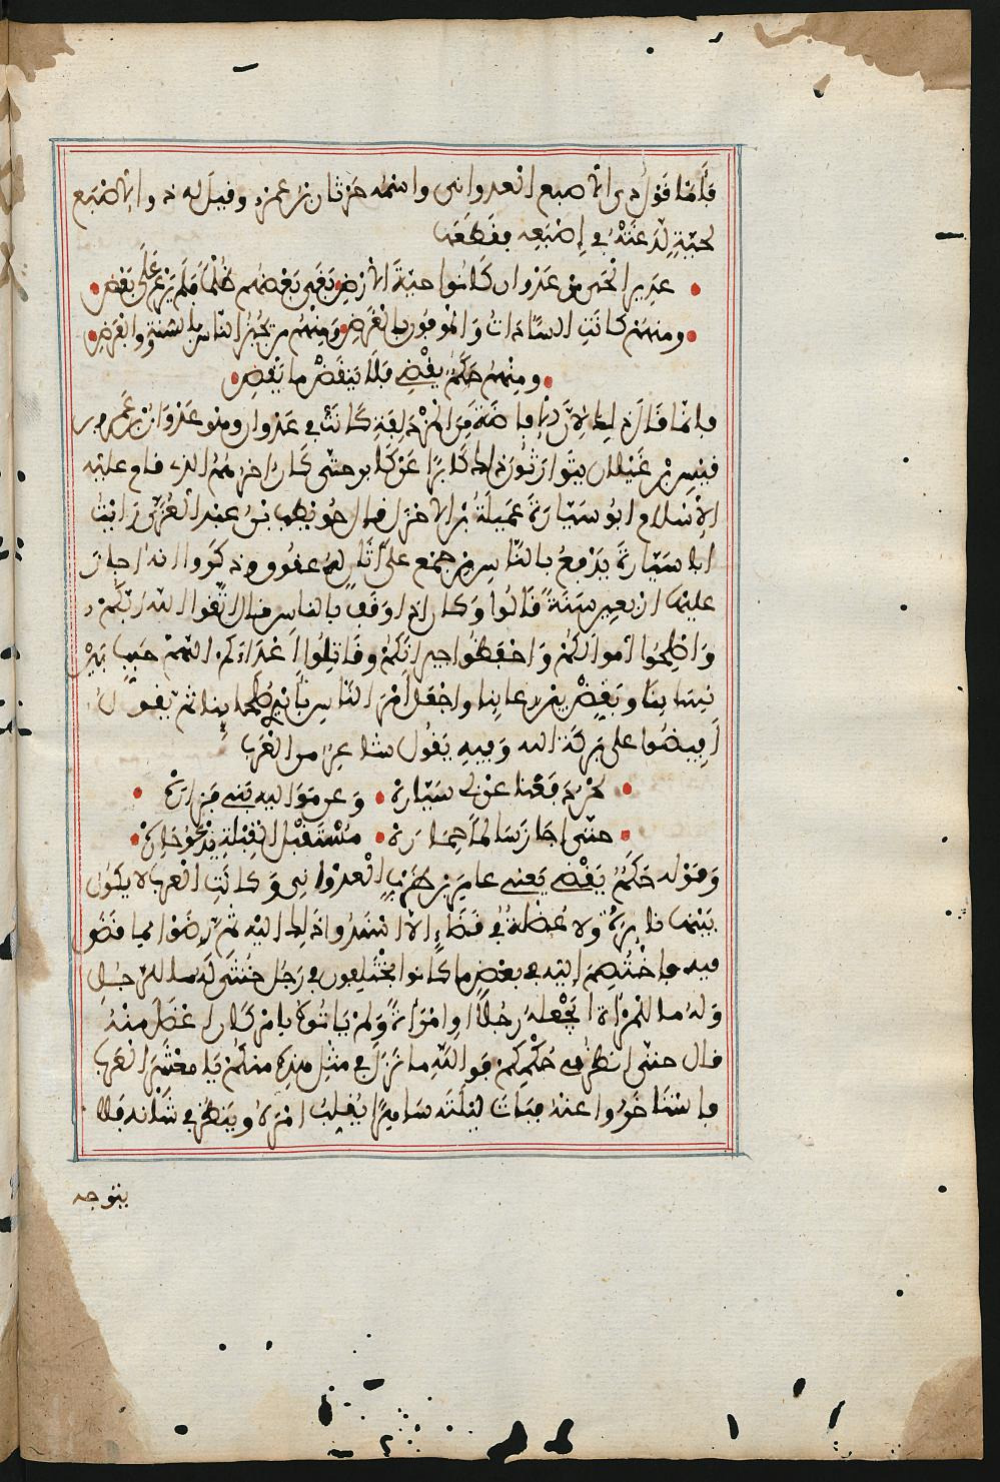 فأما قول ذي الاصبع العدواني واسمه حرثان بن عمرو وقيل له ذو الاصبع
لحية لدغته في إصبعه فقطعها
عذير الحي من عدوان كانوا حية الارض بغى بعضهم ظلما فلم يرع على بعض
ومنهم كانت السادات والموفون بالقرض ومنهم من يجيز الناس بالسنة والفرض
ومنهم حكم يقضي فلا ينقض ما يقضي
فإنما قال ذلك لان الإفاضة من المزدلفة كانت في عدوان ومنو عدوا بن عمرو بن
قيس بن غيلان يتوارثون ذلك كابرا عن كابر حتى كان اخرهم الذي قام عليه
الإسلام ابو سيارة عميلة بن الاخزل قال حويطب بن عبد العزى رايت
ابا سيارة يدفع بالناس من جمع على اتان له عفوق وذكروا انه اجاز
عليها اربعين سنة قالوا وكان اذا وقف بالناس قال اتقوا الله ربكم
واصلحوا اموالكم واحفظوا جيرانكم وقاتلوا اعداءكم اللهم حبب بين
نسائنا وبغض بين رعائنا واجعل امر الناس بأيدي صلحائنا ثم يقول
افيضوا على بركة الله وفيه يقول شاعر من العرب
نحن دفعنا عن ابي سيارة وعن مواليه بني فزارة
حتى اجاز سالما حماره مستقبل القبلة يدعو جاره
وقوله حكم يقضي يعني عامر بن ظرب العدواني وكانت العرب لا يكون
بينها نايرة ولا عضلة في قضاء إلا اسندوا ذلك اليه ثم رضوا بما قضى
فيه فاختصم إليه في بعض ما كانوا يختلفون في رجل خنثى له ما للرجل
وله ما للمرأة اتجعله رجلا او امراة ولم ياتوه بامر كان اعضل منه
فقال حتى انظر في حكمكم فوالله ما نزل في مثل هذه منكم يا معشر العرب
فاستاخروا عنه فبات ليلته ساهرا يقلب امره وينظر في شأنه فلا
يتوجه